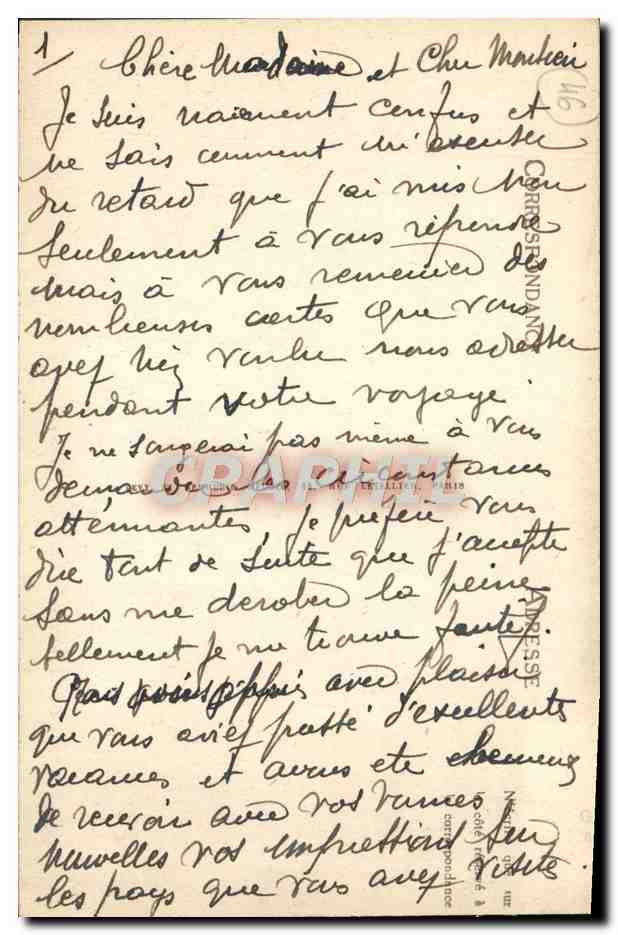 1/
Chère Madame et Cher Monsieur
46
Je suis vraiment confus et
ne sais comment m'excuser
du retard que j'ai mis non
seulement à vous répondre
mais à vous remercier des
nombreuses cartes que vous
avez bien voulu nous adresser
pendant votre voyage.
Je ne songerai pas même à vous
demander les circonstances
atténuantes, je préfère vous
dire tout de suite que j'accepte
sans me dérober la peine
tellement je me trouve fautif.
avec plaisir
que vous aviez passé d'excellentes
vacances et avons été heureux
de recevoir avec vos bonnes
nouvelles vos impressions sur
les pays que vous avez visités.
CORRESPONDANCE
ADRESSE
CRAPHIL
LETELLIER, PARIS
sur
le côté réservé à
la correspondance